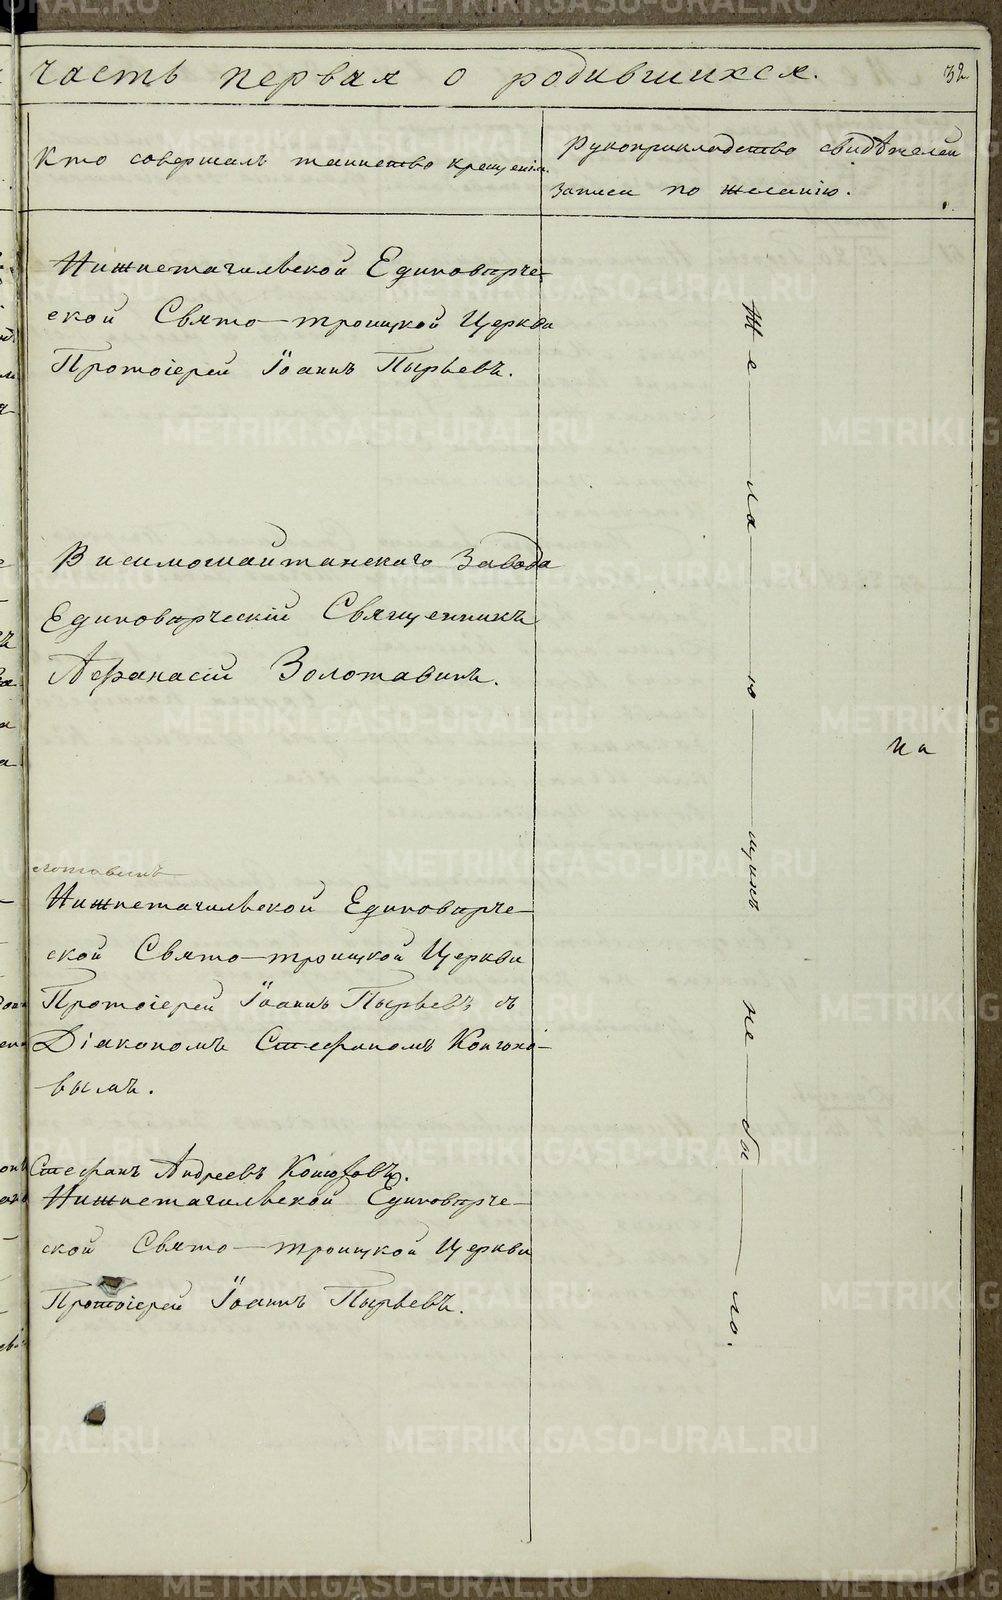 часть первая о родившихся.
32
Кто совершалъ таинство крещенія.
Рукоприкладство свидѣтелей
записи по желанію.
Нижнетагильской Единовѣрче-
ской Свято-троицкой Церкви
Протоіерей Іоаннъ Пырьевъ.
Висимошайтанскаго Завода
Единовѣрческій Священникъ
Афанасій Золотавинъ.
лотавинъ
Нижнетагильской Единовѣрче-
ской Свято-троицкой Церкви
Протоіерей Іоаннъ Пырьевъ съ
Діакономъ Стефаномъ Конюхо-
вымъ.
Стефанъ Андреевъ Конюховъ.
Нижнетагильской Единовѣрче-
ской Свято-троицкой Церкви
Протоіерей Іоаннъ Пырьевъ.
Же-ла-ю-щихъ не-бы-ло.
на
METRIKI.GASO-URAL.RU